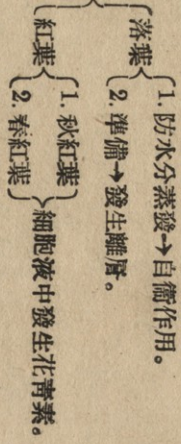 落葉
1. 防水分蒸發→自衞作用。
2. 準備→發生離層。
紅葉
1. 秋紅葉
2. 春紅葉
細胞液中發生花青素。